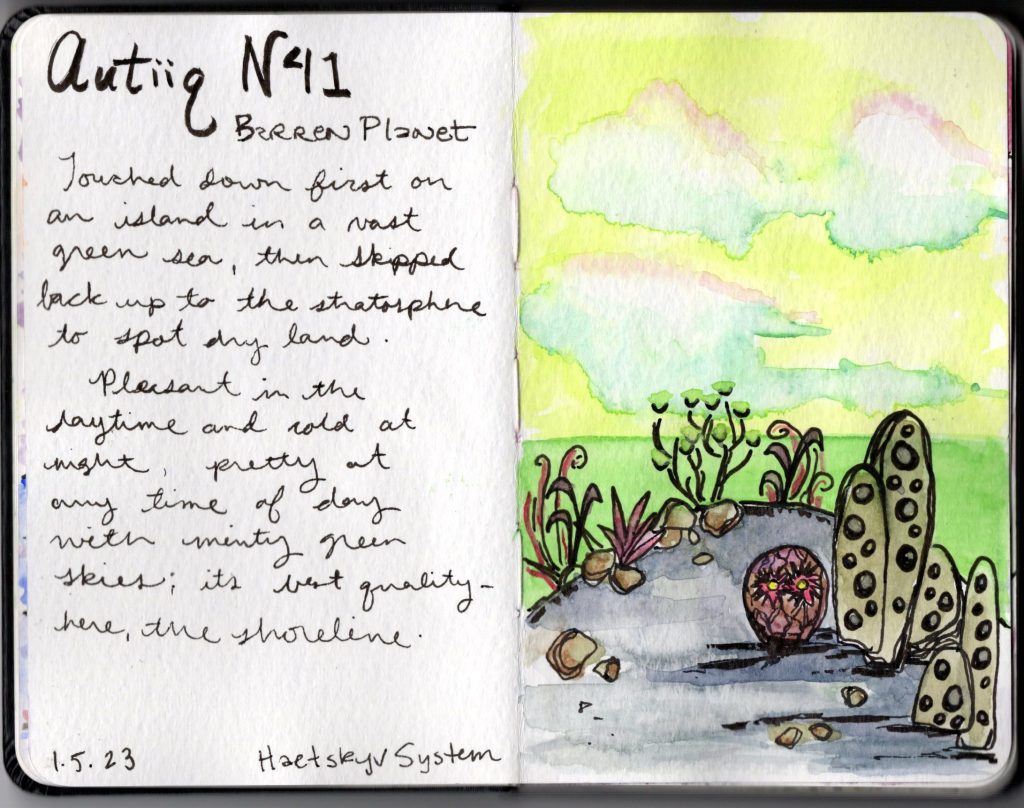 Autiiq N41
Barren Planet
Touched down first on
an island in a vast
green sea, then skipped
back up to the stratosphere
to spot dry land.
Pleasant in the
daytime and cold at
night, pretty at
any time of day
with minty green
skies; its best quality-
here, the shoreline.
1.5.23
Haetskyv System